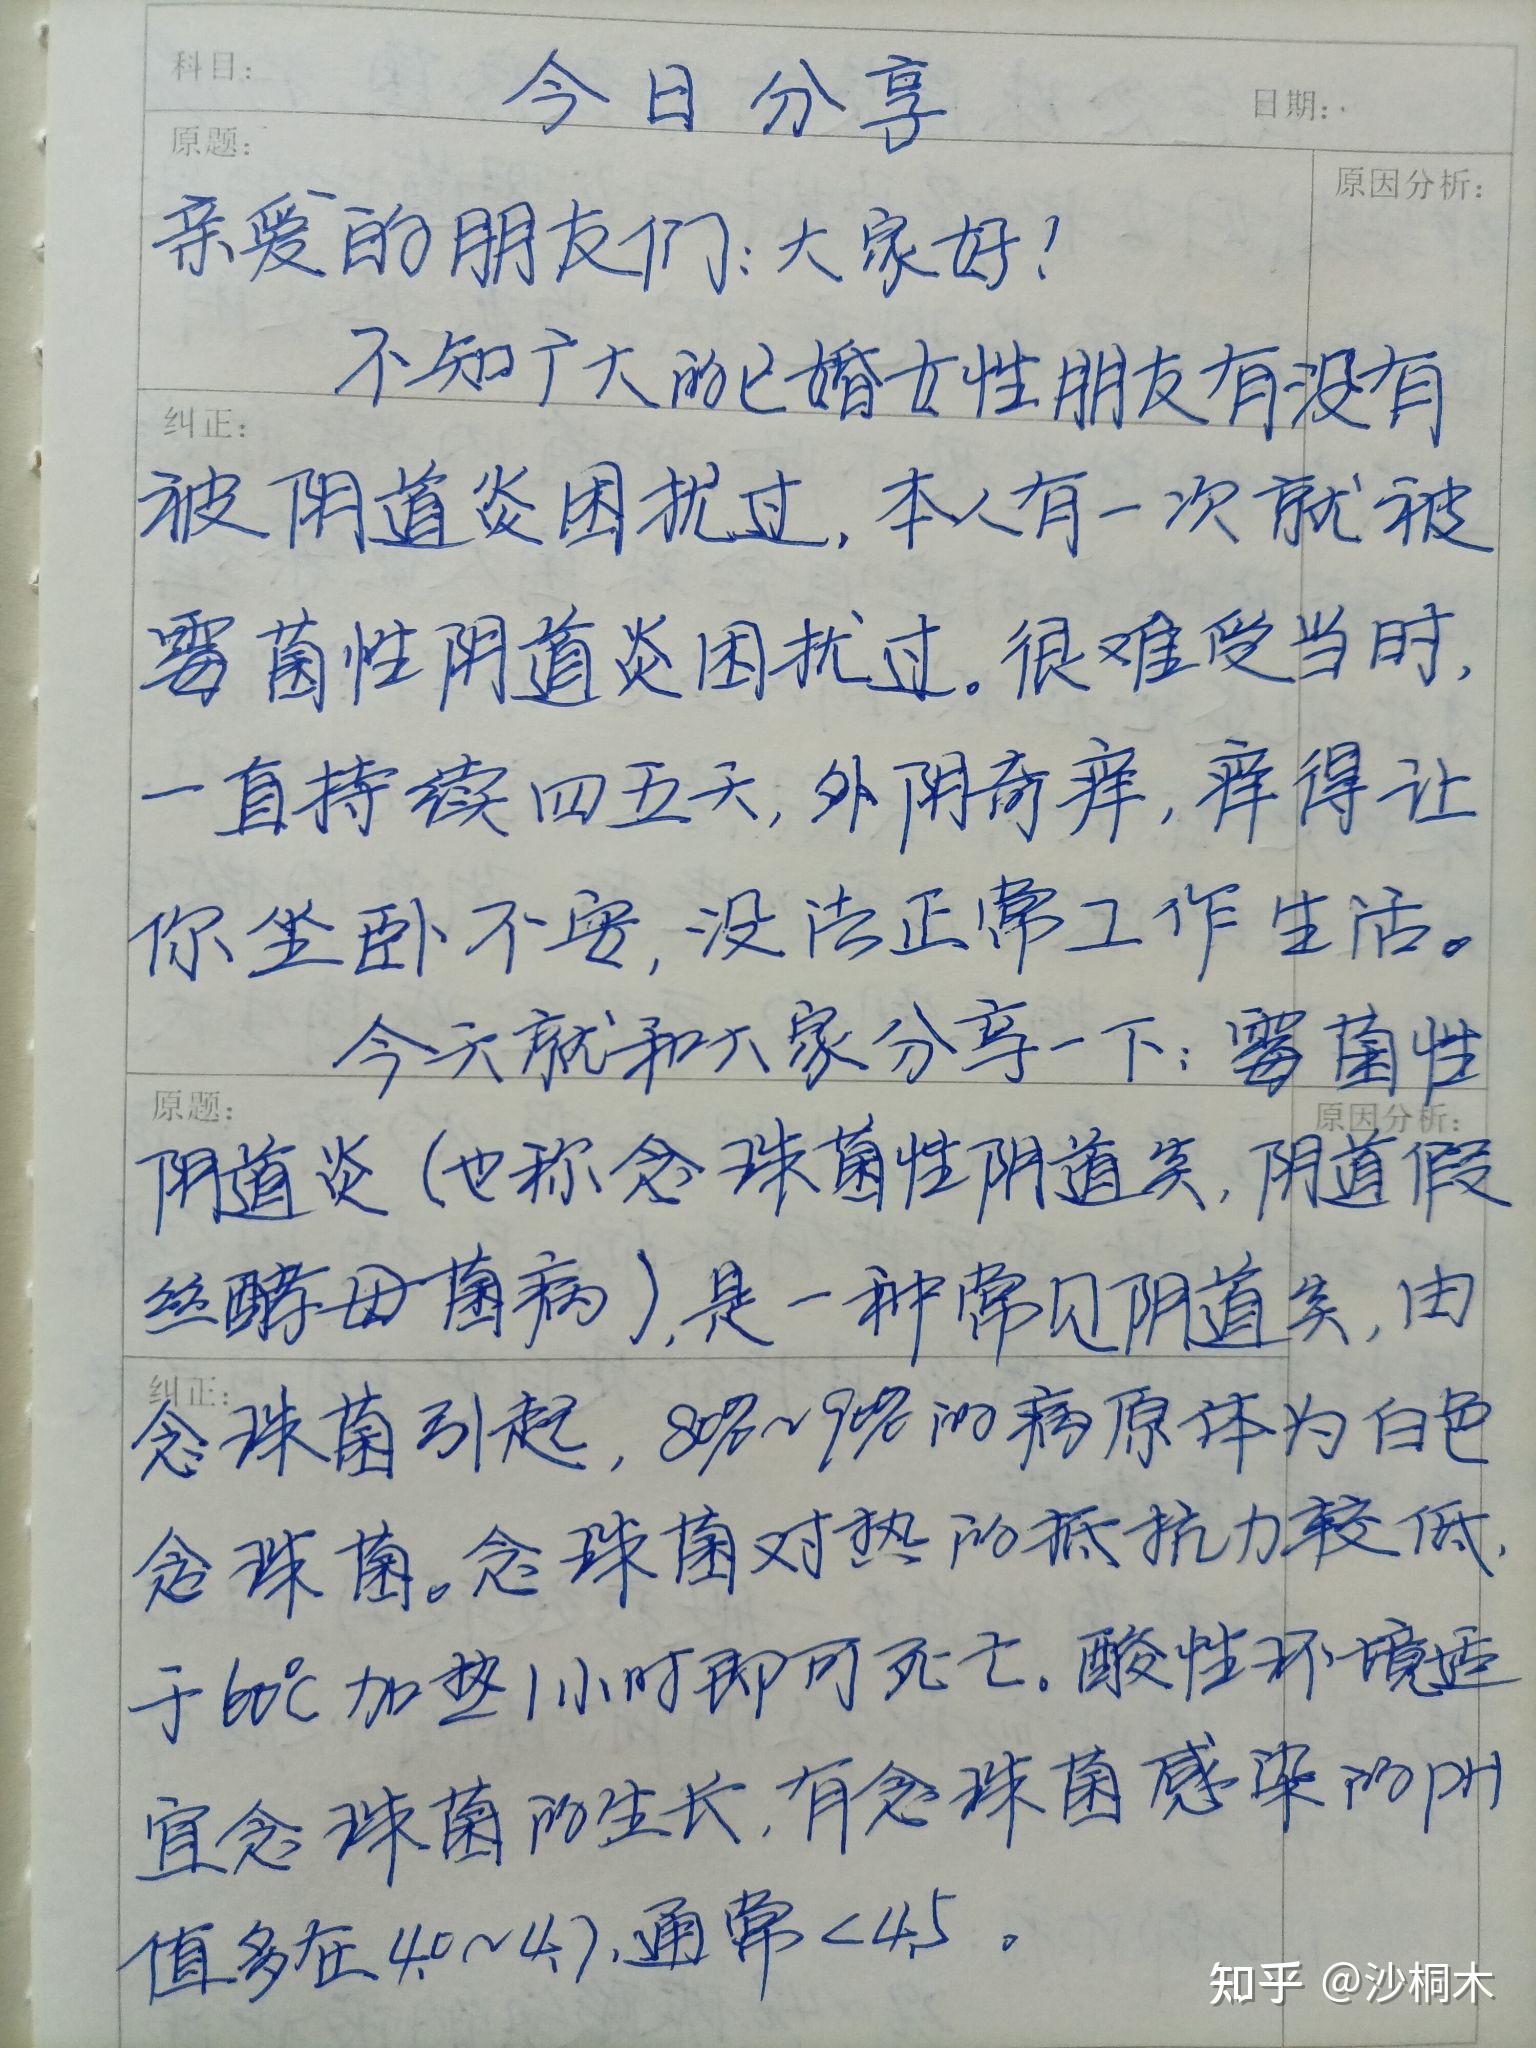 科目：
今日分享
日期：
原题：
原因分析：
亲爱的朋友们：大家好！
不知广大的已婚女性朋友有没有
纠正：
被阴道炎困扰过，本人有一次就被
霉菌性阴道炎困扰过。很难受当时，
一直持续四五天，外阴奇痒，痒得让
你坐卧不安，没法正常工作生活。
今天就和大家分享一下：霉菌性
原题：
原因分析：
阴道炎（也称念珠菌性阴道炎，阴道假
丝酵母菌病），是一种常见阴道炎，由
纠正：
念珠菌引起，80%~90%的病原体为白色
念珠菌。念珠菌对热的抵抗力较低，
于60℃加热1小时即可死亡。酸性环境适
宜念珠菌的生长，有念珠菌感染的PH
值多在4.0~4.7，通常<4.5。
知乎 @沙桐木